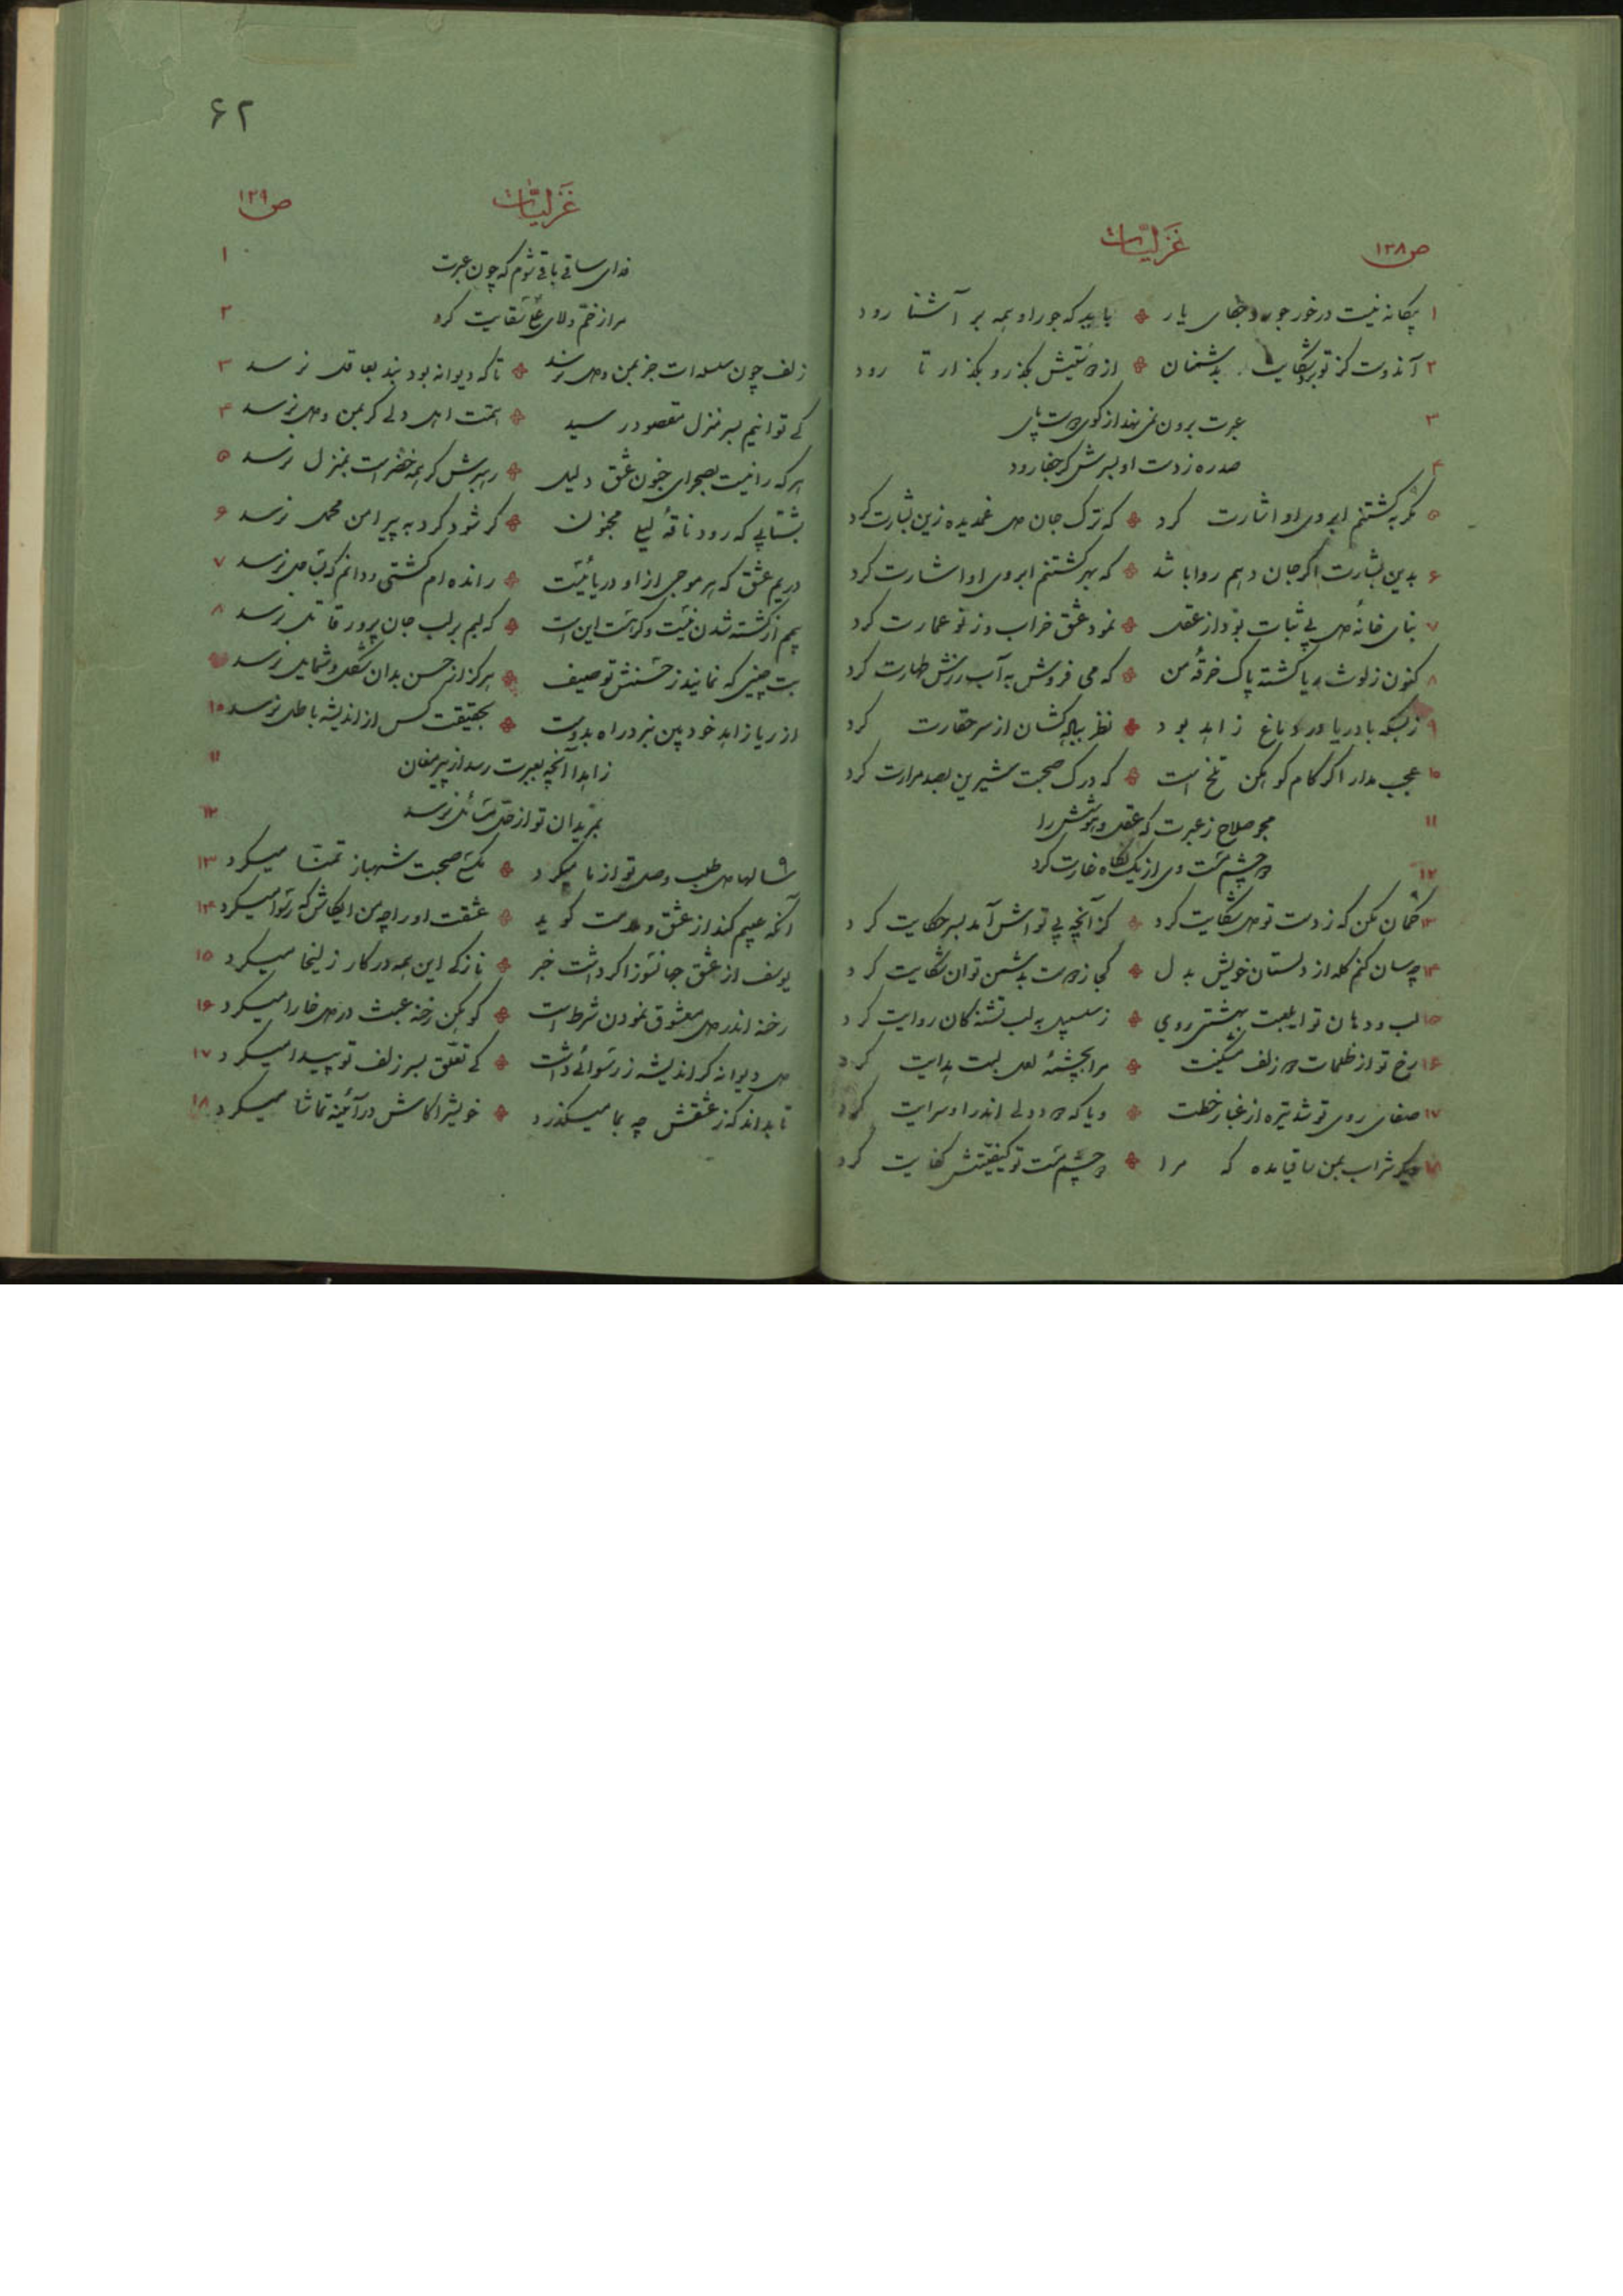 ص ۱۳۸
غزلیات
۱ بیگانه نیست درخور جور و جفای یار باید که جور او همه بر آشنا رود
۲ آندوست کز تو برد شکایت بدشمنان از دوستیش بگذر و بگذار تا رود
۳ عبرت برون نمی نهد از کوی دوست پای
۴ صد ره ز دست او بسرش گر جفا رود
۵ مگر به کشتنم ابروی او اشارت کرد که ترک جان دل غمدیده زین بشارت کرد
۶ بدین بشارت اگر جان دهم روا باشد که بهر کشتنم ابروی او اشارت کرد
۷ بنای خانهٔ دل بی ثبات بود از عقل نمود عشق خراب و ز نو عمارت کرد
۸ کنون ز لوث ریا گشته پاک خرقهٔ من که می فروش به آب رزش طهارت کرد
۹ ز بسکه باد ریا در دماغ زاهد بود نظر به کشان از سر حقارت کرد
۱۰ عجب مدار اگر کام کوهکن تلخ است که درک صحبت شیرین بصد مرارت کرد
۱۱ مجو صلاح ز عبرت که عقل و هوشش را
۱۲ دو چشم مست وی از یک نگاه غارت کرد
۱۳ گمان مکن که ز دست تو دل شکایت کرد کز آنچه بی تو اش آمد بسر حکایت کرد
۱۴ چه سان کنم گله از دلستان خویش بدل کجا ز دوست بدشمن توان شکایت کرد
۱۵ لب و دهان تو ایلعبت بهشتی روی ز سلسبیل به لب تشنه کان روایت کرد
۱۶ رخ تو از ظلمات دو زلف مشکینت مرا بچشمهٔ لعل لبت هدایت کرد
۱۷ صفای روی تو شد تیره از غبار خطت و یا که دود دلی اندر او سرایت کرد
۱۸ دیگر شراب بمن ساقیا مده که مرا دو چشم مست تو کیفیتش کفایت کرد
۶۲
غزلیات
ص ۱۳۹
۱ فدای ساقی باقی شوم که چون عبرت
۲ مرا ز خم ولای علی سقایت کرد
۳ زلف چون سلسله ات جز بمن و دل نرسد تا که دیوانه بود بند بعاقل نرسد
۴ کی توانیم بسر منزل مقصود رسید همت اهل دلی گر بمن و دل نرسد
۵ هر که را نیست بصحرای جنون عشق دلیل رهبرش گر همه خضر است بمنزل نرسد
۶ بشتابی که رود ناقهٔ لیلی مجنون گر شود گرد به پیرامن محمل نرسد
۷ در یم عشق که هر موجی از او دریائیست رانده ام کشتی و دانم که بساحل نرسد
۸ بیمم از کشته شدن نیست و گر هست این است که لبم بر لب جان پرور قاتل نرسد
بت چینی که نمایند ز حسنش توصیف هرگز از حسن بدان شکل و شمایل نرسد
۱۰ از ریا زاهد خود بین نبرد راه بدوست بحقیقت کس از اندیشهٔ باطل نرسد
۱۱ زاهدا آنچه بعبرت رسد از پیر مغان
۱۲ بمریدان تو از حل مسائل نرسد
۱۳ سالها دل طلب وصل تو از ما میکرد مگس صحبت شهباز تمنا میکرد
۱۴ آنکه عیبم کند از عشق و ملامت گوید عشقت او را چو من ایکاش که رسوا میکرد
۱۵ یوسف از عشق جهانسوز اگر داشت خبر ناز کی این همه در کار زلیخا میکرد
۱۶ رخنه اندر دل معشوق نمودن شرط است کوهکن رخنه عبث در دل خارا میکرد
۱۷ دل دیوانه گر اندیشه ز رسوائی داشت کی تعلق بسر زلف تو پیدا میکرد
۱۸ تا بداند که ز عشقش چه بما میگذرد خویش را کاش در آئینه تماشا میکرد